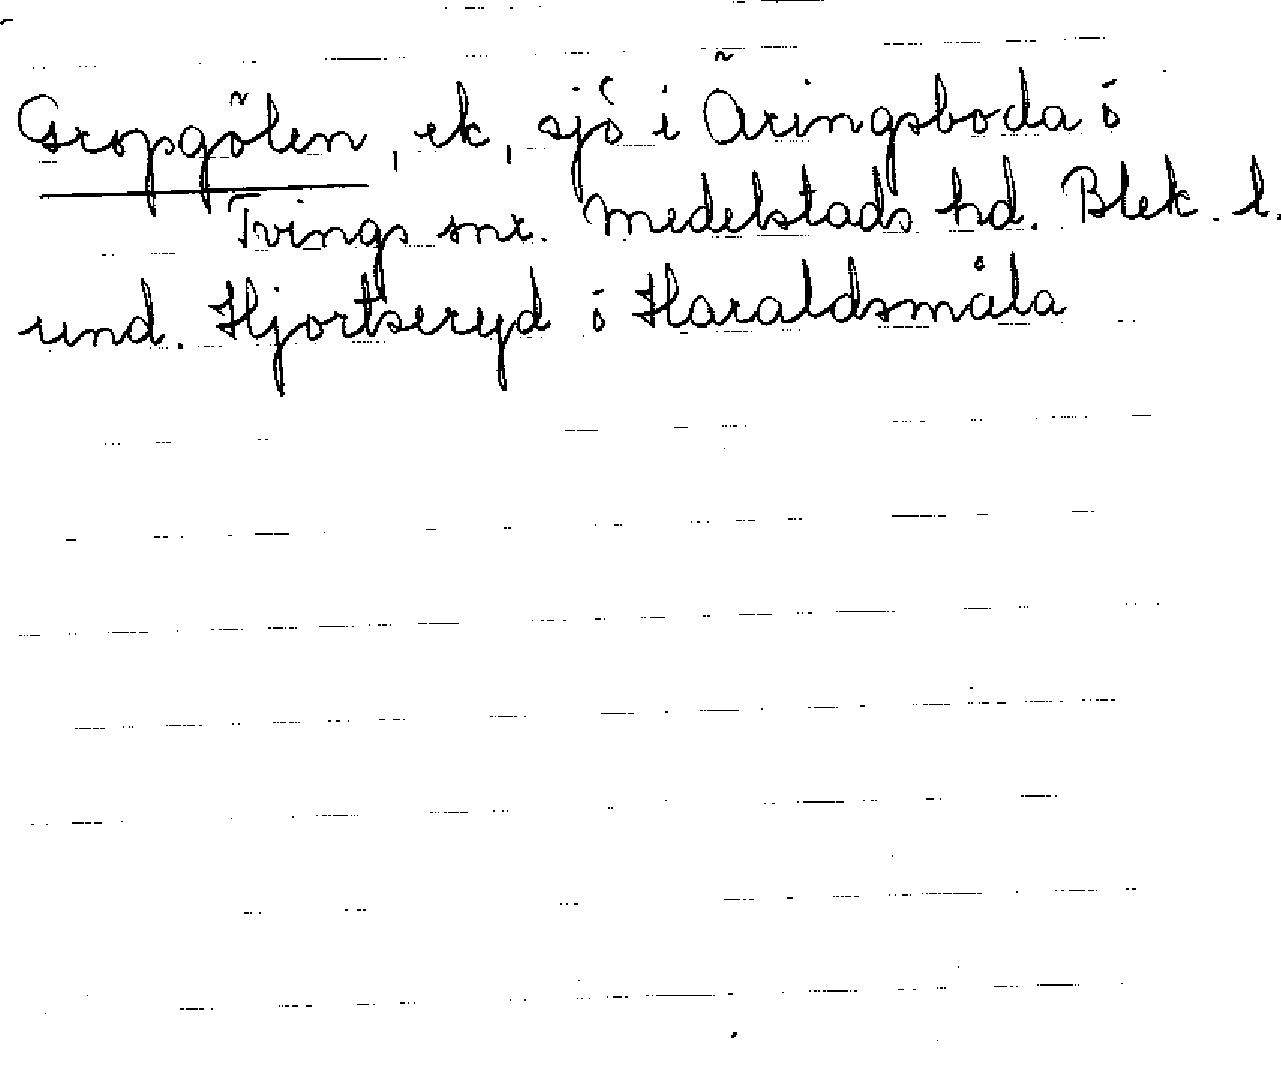 Gropgölen, ek, sjö i Äringsboda i
Tvings snr. Medelstads hd. Blek. l.
und. Hjortseryd i Haraldsmåla